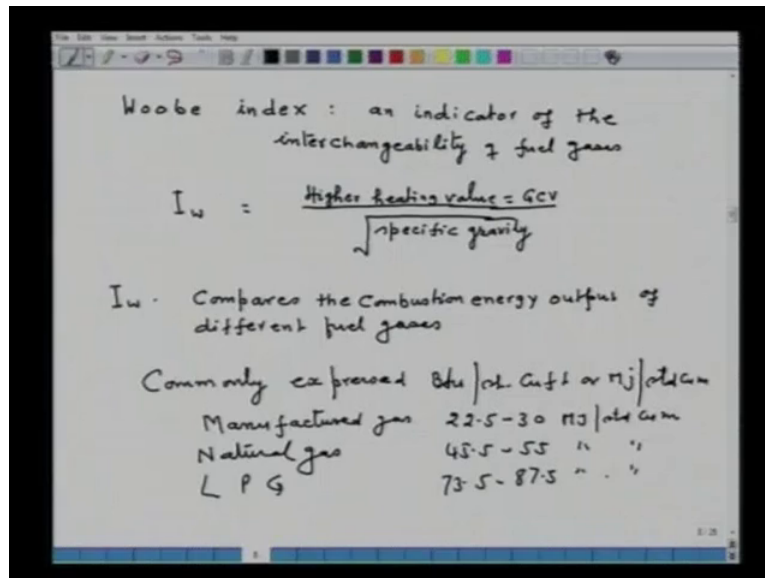 File Edit View Insert Actions Tools Help
Woobe index : an indicator of the
interchangeability of fuel gases
Iw = Higher heating value = GCV
√specific gravity
Iw. Compares the Combustion energy output of
different fuel gases
Commonly expressed Btu/st. Cuft or MJ/std cum
Manufactured gas 22.5-30 MJ/std cum
Natural gas 45.5-55 " "
L P G 73.5-87.5 " . "